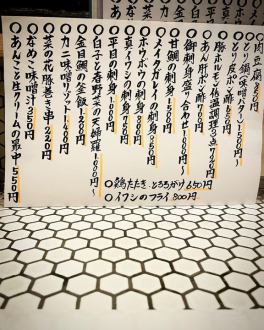 ○肉豆腐 850円
○とり鍋(味噌バター) 1,500円
○とりわさポン酢 650円
○豚ホルモン低温調理3点 720円
○あん肝ポン酢 700円
○御刺身盛り合わせ 1,000円〜
○甘鯛の刺身 1,100円
○メイタカレイの刺身 950円
○ホウボウの刺身 850円
○真イワシの刺身 780円
○平目の刺身 1,100円
○白子と春野菜の天婦羅 1,100円〜
○金目鯛の釜飯 1,200円
○カニ味噌リゾット 1,400円
○菜の花豚巻き串 220円
○なめこ味噌汁 350円
○あんこと生クリームの最中 550円
○鶏たたき とろろがけ 650円
○イワシのフライ 800円